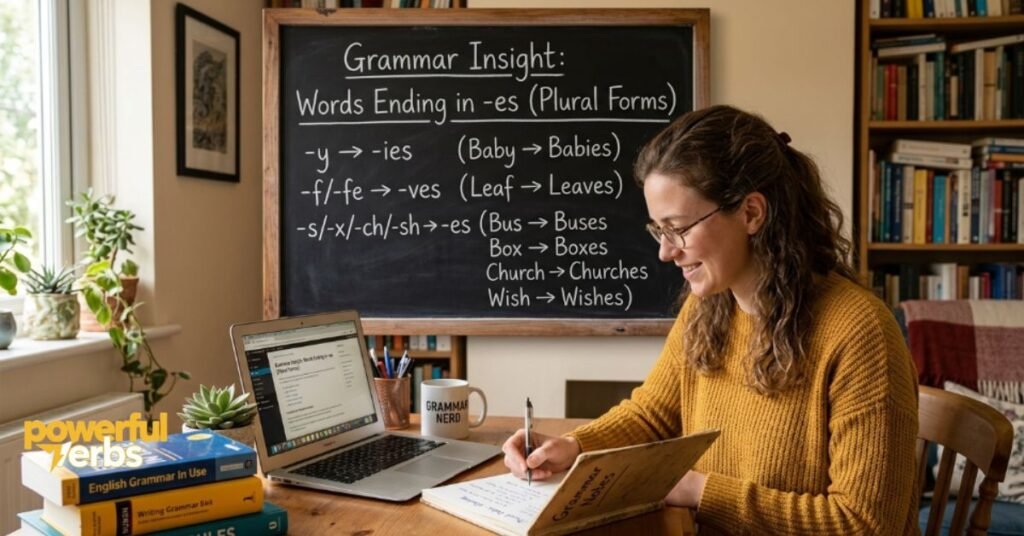 Grammar Insight:
Words Ending in -es (Plural Forms)
-y → -ies (Baby → Babies)
-f/-fe → -ves (Leaf → Leaves)
-s/-x/-ch/-sh → -es (Bus → Buses
Box → Boxes
Church → Churches
Wish → Wishes)
GRAMMAR
NERD
powerful
verbs
English Grammar In Use
Writing Grammar
Grammar
Notes